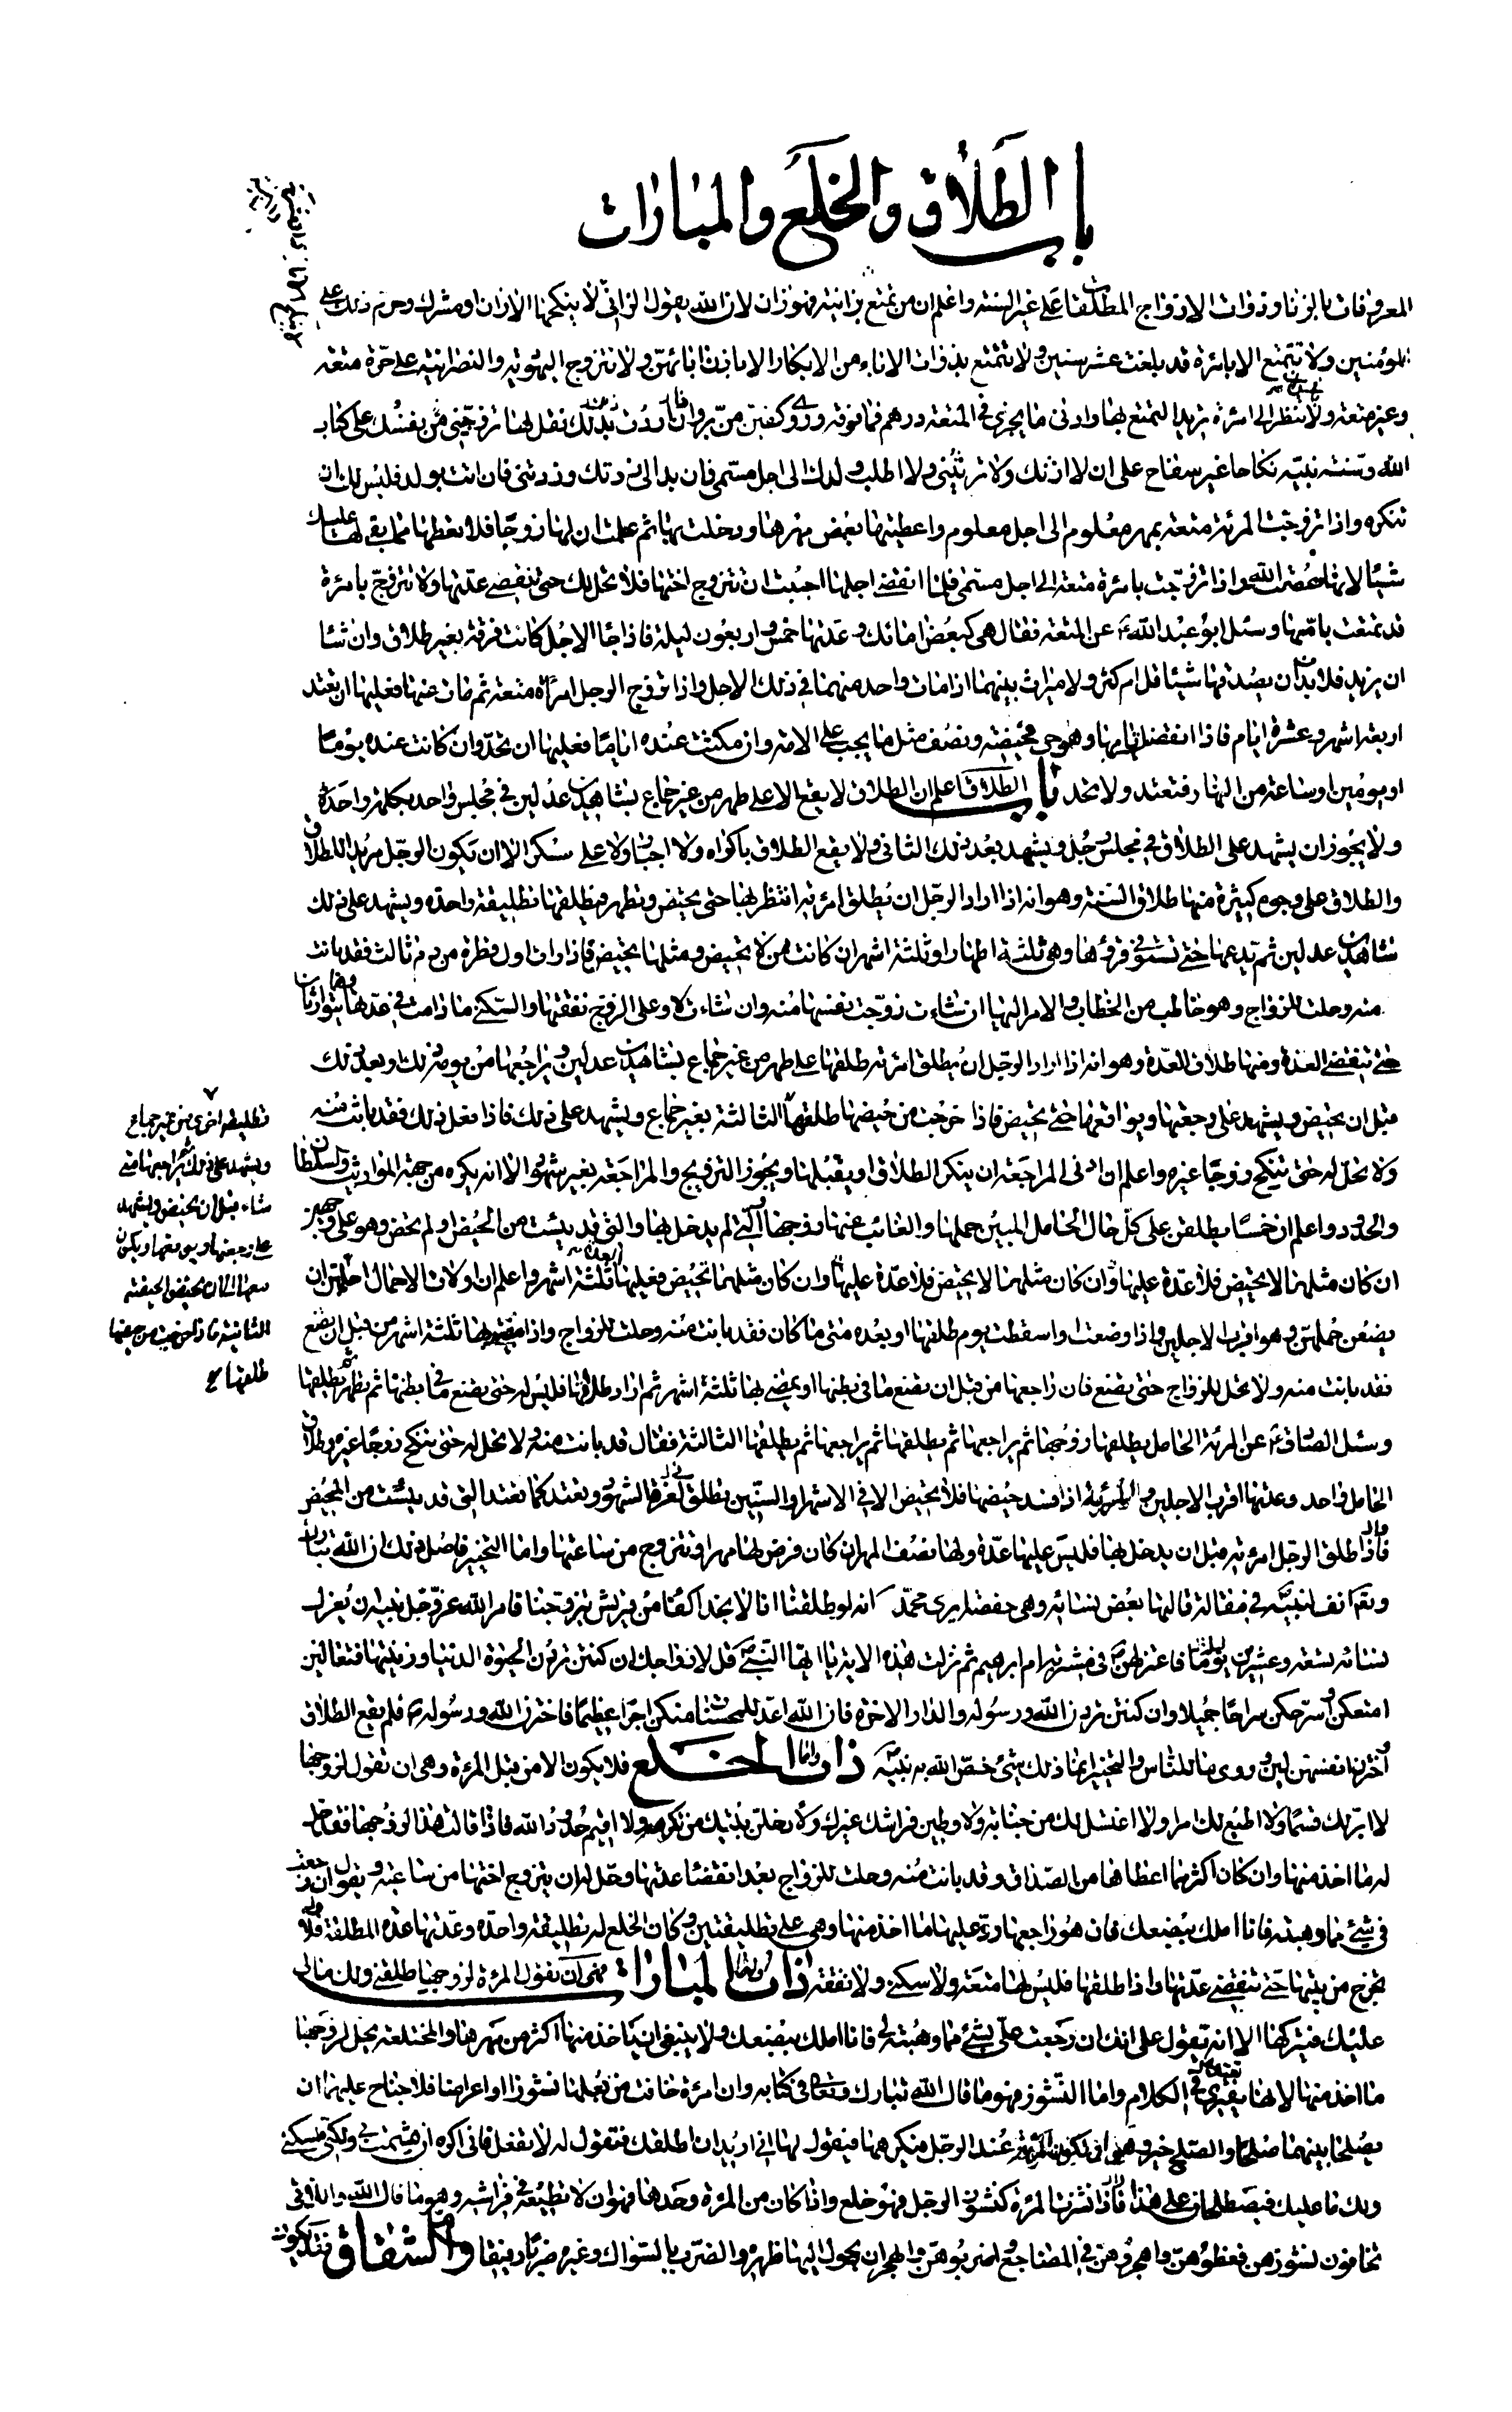 باب الطلاق والخلع والمبارات
المعروفات بالزنا وذوات الازواج المطلقات على غير السنة واعلم ان من تمتع بزانية فهو زان لان الله يقول الزاني لا ينكحها الا زان او مشرك وحرم ذلك على
المؤمنين ولا تتمتع الا بامرئة قد بلغت عشر سنين ولا تتمتع بذوات الاباء من الابكار الا باذن ابائهن ولا تتزوج اليهودية والنصرانية على حرة متعة
وغير متعة ولا تنظر الى امرئة تريد التمتع بها وادنى ما يجزي في المتعة درهم فما فوقه وروي كفين من بر فان اردت ذلك فقل لها تزوجيني من نفسك على كتاب
الله وسنة نبيه نكاحا غير سفاح على ان لا ارثك ولا ترثيني ولا اطلب ولدك الى اجل مسمى فان بدا لي زدتك وزدتني فان اتت بولد فليس لك ان
تنكره واذا تزوجت المرئة متعة بمهر معلوم الى اجل معلوم واعطيتها بعض مهرها ودخلت بها ثم علمت ان لها زوجا فلا تعطها مما بقي لها عليك
شيئا لانها عصت الله واذا تزوجت بامرئة متعة الى اجل مسمى فلما انقضى اجلها احببت ان تتزوج اختها فلا تحل لك حتى تنقضي عدتها ولا تتزوج بامرئة
قد تمتعت بامها وسئل ابو عبد الله ع عن المتعة فقال هي كبعض امائك وعدتها خمس واربعون ليلة فاذا جاء الاجل كانت فرقة بغير طلاق وان شاء
ان يزيد فلا بد ان يصدقها شيئا قل ام كثر ولا ميراث بينهما اذا مات واحد منهما في ذلك الاجل واذا تزوج الرجل امرأة متعة ثم مات عنها فعليها ان تعتد
اربعة اشهر وعشرة ايام فاذا انقضت ايامها وهو حي فحيضة ونصف مثل ما يجب على الامة وان مكثت عنده اياما فعليها ان تحد وان كانت عنده يوما
او يومين او ساعة من النهار فتعتد ولا تحد باب الطلاق اعلم ان الطلاق لا يقع الا على طهر من غير جماع بشاهدين عدلين في مجلس واحد بكلمة واحدة
ولا يجوز ان يشهد على الطلاق في مجلس رجل ويشهد بعد ذلك الثاني ولا يقع الطلاق باكراه ولا اجبار ولا على سكر الا ان يكون الرجل مريدا للطلاق
والطلاق على وجوه كثيرة منها طلاق السنة وهو انه اذا اراد الرجل ان يطلق امرئته انتظر بها حتى تحيض وتطهر فيطلقها تطليقة واحدة ويشهد على ذلك
شاهدين عدلين ثم يدعها حتى تستوفي قروئها وهي ثلثة اطهار او ثلثة اشهر ان كانت ممن لا تحيض ومثلها تحيض فاذا رات اول قطرة من دم ثالث فقد بانت
منه وحلت للزواج وهو خاطب من الخطاب والامر اليها ان شاءت زوجت نفسها منه وان شاءت لا وعلى الزوج نفقتها والسكنى ما دامت في عدتها وهما يتوارثان
حتى تنقضي العدة ومنها طلاق العدة وهو انه اذا اراد الرجل ان يطلق امرئته طلقها على طهر من غير جماع بشاهدين عدلين ويراجعها من يومه ذلك وبعد ذلك
قبل ان تحيض ويشهد على رجعتها ويواقعها حتى تحيض فاذا خرجت من حيضها طلقها الثالثة بغير جماع ويشهد على ذلك فاذا فعل ذلك فقد بانت منه
ولا تحل له حتى تنكح زوجا غيره واعلم ان ادنى المراجعة ان ينكر الطلاق او يقبلها ويجوز التزويج والمراجعة بغير شهود الا انه يكره من جهة المواريث والسلطان
والحدود واعلم ان خمسا يطلقن على كل حال الحامل المبين حملها والغائب عنها زوجها والتي لم يدخل بها والتي قد يئست من الحيض او لم تحض وهو على وجهين
ان كان مثلها لا تحيض فلا عدة عليها وان كان مثلها تحيض فعليها العدة ثلثة اشهر واعلم ان اولات الاحمال اجلهن ان
يضعن حملهن وهو اقرب الاجلين واذا وضعت او اسقطت يوم طلقها او بعده متى ما كان فقد بانت منه وحلت للزواج واذا مضى بها ثلثة اشهر من قبل ان تضع
فقد بانت منه ولا تحل للزواج حتى تضع فان راجعها من قبل ان تضع ما في بطنها او يمضي بها ثلثة اشهر ثم اراد طلاقها فليس له حتى تضع ما في بطنها ثم تطهر ثم يطلقها
وسئل الصادق ع عن المرئة الحامل يطلقها زوجها ثم يراجعها ثم يطلقها ثم يراجعها ثم يطلقها الثالثة فقال قد بانت منه ولا تحل له حتى تنكح زوجا غيره وطلاق
الحامل واحد وعدتها اقرب الاجلين والمرئة اذا فسد حيضها فلا تحيض الا في الاشهر او السنين تطلق لغرة الشهور وتعتد كما تعتد التي قد يئست من المحيض
فاذا طلق الرجل امرئته قبل ان يدخل بها فليس عليها عدة ولها نصف المهر ان كان فرض لها مهرا وتتزوج من ساعتها واما التخيير فاصل ذلك ان الله تبارك
وتع انف لنبيه في مقالة قالها بعض نسائه وهي حفصة ايرى محمد انه لو طلقنا انا لا نجد اكفاء من قريش يتزوجنا فامر الله عز وجل نبيه ان يعزل
نسائه تسعة وعشرين يوما فاعتزلهن في مشربة ام ابراهيم ثم نزلت هذه الاية يا ايها النبي قل لازواجك ان كنتن تردن الحيوة الدنيا وزينتها فتعالين
امتعكن واسرحكن سراحا جميلا وان كنتن تردن الله ورسوله والدار الاخرة فان الله اعد للمحسنات منكن اجرا عظيما فاخترن الله ورسوله فلم يقع الطلاق
اخترن انفسهن لبن وروي ما للناس والتخيير انما ذلك شيئ خص الله به نبيه واما الخلع فلا يكون الا من قبل المرئة وهي ان تقول لزوجها
لا ابر لك قسما ولا اطيع لك امرا ولا اغتسل لك من جنابة ولاوطين فراشك غيرك ولادخلن بيتك من تكرهه ولا اقيم حدود الله فاذا قالت هذا لزوجها فقد حل
له ما اخذ منها وان كان اكثر مما اعطاها من الصداق وقد بانت منه وحلت للزواج بعد انقضاء عدتها وحل له ان يتزوج اختها من ساعته ويقول ان رجعت
في شيئ مما وهبته فانا املك ببضعك فان هو راجعها رد عليها ما اخذ منها وهي على تطليقتين وكان الخلع له تطليقة واحدة وعدتها عدة المطلقة ولا
تخرج من بيتها حتى تنقضي عدتها واذا طلقها فليس لها متعة ولا سكنى ولا نفقة واما المبارات فهي ان تقول المرئة لزوجها طلقني ولك ما لي
عليك فيتركها الا انه يقول على انك ان رجعت علي بشيئ مما وهبته لي فانا املك ببضعك ولا ينبغي ان ياخذ منها اكثر من مهرها والمختلعة يحل لزوجها
ما اخذ منها لانها تعتدي في الكلام واما النشوز فهو ما قال الله تبارك وتعالى في كتابه وان امرئة خافت من بعلها نشوزا او اعراضا فلا جناح عليهما ان
يصلحا بينهما صلحا والصلح خير وهي ان تكون المرئة عند الرجل فيكرهها فيقول لها اني اريد ان اطلقك فتقول له لا تفعل فاني اكره ان يشمت بي ولكن
ولك ما عليك فيصطلحان على هذا فاذا نشزت المرئة كنشوز الرجل فهو خلع واذا كان من المرئة وحدها فهو ان لا تطيعه في فراشه وهو ما قال الله واللاتي
تخافون نشوزهن فعظوهن واهجروهن في المضاجع واضربوهن والهجران يحول اليها ظهره والضرب بالسواك وغيره ضربا رفيقا واما الشقاق فقد يكون
تطليقة اخرى من غير جماع
ويشهد على ذلك ثم يراجعها متى
شاء قبل ان تحيض ويشهد
على رجعتها ويواقعها ويكون
معها الى ان تحيض الحيضة
الثانية فاذا خرجت من حيضها
طلقها